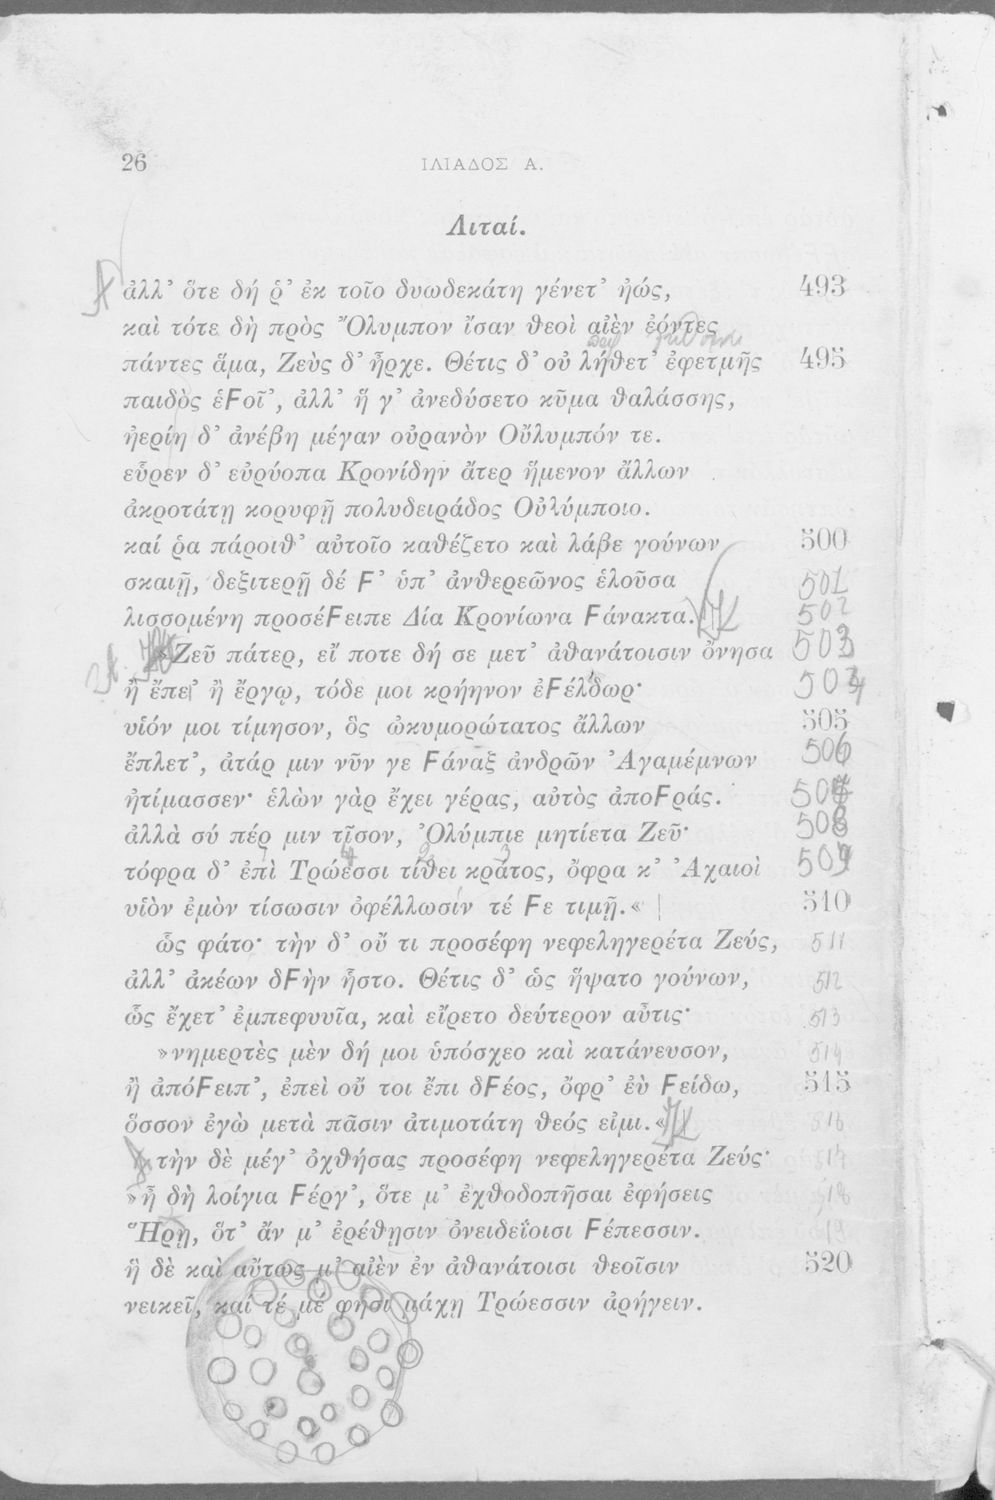 26 ΙΛΙΑΔΟΣ Α.
Λιταί.
ἀλλ’ ὅτε δή ῥ’ ἐκ τοῖο δυωδεκάτη γένετ’ ἠώς, 493
καὶ τότε δὴ πρὸς Ὄλυμπον ἴσαν θεοὶ αἰὲν ἐόντες
πάντες ἅμα, Ζεὺς δ’ ἦρχε. Θέτις δ’ οὐ λήθετ’ ἐφετμῆς 495
παιδὸς ἑϜοῖ’, ἀλλ’ ἥ γ’ ἀνεδύσετο κῦμα θαλάσσης,
ἠερίη δ’ ἀνέβη μέγαν οὐρανὸν Οὔλυμπόν τε.
εὗρεν δ’ εὐρύοπα Κρονίδην ἄτερ ἥμενον ἄλλων
ἀκροτάτῃ κορυφῇ πολυδειράδος Οὐλύμποιο.
καί ῥα πάροιθ’ αὐτοῖο καθέζετο καὶ λάβε γούνων 500
σκαιῇ, δεξιτερῇ δέ Ϝ’ ὑπ’ ἀνθερεῶνος ἑλοῦσα 501
λισσομένη προσέϜειπε Δία Κρονίωνα Ϝάνακτα. 502
»Ζεῦ πάτερ, εἴ ποτε δή σε μετ’ ἀθανάτοισιν ὄνησα 503
ἢ ἔπει ἢ ἔργῳ, τόδε μοι κρήηνον ἐϜέλδωρ· 504
υἱόν μοι τίμησον, ὃς ὠκυμορώτατος ἄλλων 505
ἔπλετ’, ἀτάρ μιν νῦν γε Ϝάναξ ἀνδρῶν Ἀγαμέμνων 506
ἠτίμασσεν· ἑλὼν γὰρ ἔχει γέρας, αὐτὸς ἀποϜράς. 507
ἀλλὰ σύ πέρ μιν τῖσον, Ὀλύμπιε μητίετα Ζεῦ· 508
τόφρα δ’ ἐπὶ Τρώεσσι τίθει κράτος, ὄφρα κ’ Ἀχαιοὶ 509
υἱὸν ἐμὸν τίσωσιν ὀφέλλωσίν τέ Ϝε τιμῇ.« 510
ὣς φάτο· τὴν δ’ οὔ τι προσέφη νεφεληγερέτα Ζεύς, 511
ἀλλ’ ἀκέων δϜὴν ἧστο. Θέτις δ’ ὡς ἥψατο γούνων, 512
ὣς ἔχετ’ ἐμπεφυυῖα, καὶ εἴρετο δεύτερον αὖτις· 513
»νημερτὲς μὲν δή μοι ὑπόσχεο καὶ κατάνευσον, 514
ἢ ἀπόϜειπ’, ἐπεὶ οὔ τοι ἔπι δϜέος, ὄφρ’ ἐὺ Ϝείδω, 515
ὅσσον ἐγὼ μετὰ πᾶσιν ἀτιμοτάτη θεός εἰμι.« 516
τὴν δὲ μέγ’ ὀχθήσας προσέφη νεφεληγερέτα Ζεύς· 517
»ἦ δὴ λοίγια Ϝέργ’, ὅτε μ’ ἐχθοδοπῆσαι ἐφήσεις 518
Ἥρῃ, ὅτ’ ἄν μ’ ἐρέθῃσιν ὀνειδείοισι Ϝέπεσσιν. 519
ἣ δὲ καὶ αὔτως μ’ αἰὲν ἐν ἀθανάτοισι θεοῖσιν 520
νεικεῖ, καί τέ μέ φησι μάχῃ Τρώεσσιν ἀρήγειν.